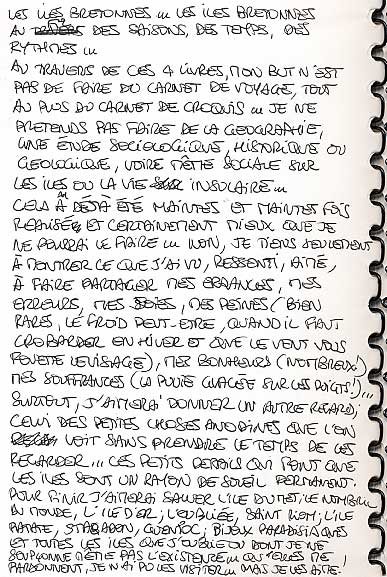 LES ILES BRETONNES ... LES ILES BRETONNES
AU DES SAISONS, DES TEMPS, DES
RYTHMES ...
AU TRAVERS DE CES 4 LIVRES, MON BUT N'EST
PAS DE FAIRE DU CARNET DE VOYAGE, TOUT
AU PLUS DU CARNET DE CROQUIS ... JE NE
PRETENDS PAS FAIRE DE LA GEOGRAPHIE,
UNE ETUDE SOCIOLOGIQUE, HISTORIQUE OU
GEOLOGIQUE, VOIRE MÊME SOCIALE SUR
LES ILES OU LA VIE INSULAIRE ...
CELA A DÉJÀ ÉTÉ MAINTES ET MAINTES FOIS
REALISÉ ET CERTAINEMENT MIEUX QUE JE
NE POURRAI LE FAIRE ... NON, JE TIENS SEULEMENT
À MONTRER CE QUE J'AI VU, RESSENTI, AIMÉ,
À FAIRE PARTAGER MES ERRANCES, MES
ERREURS, MES JOIES, MES PEINES (BIEN
RARES, LE FROID PEUT-ETRE, QUAND IL FAUT
CROBARDER EN HIVER ET QUE LE VENT VOUS
FOUETTE LE VISAGE), MES BONHEURS (NOMBREUX)
MES SOUFFRANCES (LA PLUIE GLACÉE SUR LES DOIGTS!)...
SURTOUT, J'AIMERAI DONNER UN AUTRE REGARD;
CELUI DES PETITES CHOSES ANODINES QUE L'ON
VOIT SANS PRENDRE LE TEMPS DE LES
REGARDER ... CES PETITS DETAILS QUI FONT QUE
LES ILES SONT UN RAYON DE SOLEIL PERMANENT.
POUR FINIR J'AIMERAI SALUER L'ILE DUMET, LE NOMBRIL
DU MONDE, L'ILE D'ER; L'OUBLIÉE, SAINT RIOM; L'ILE
PATATE, STAGADON, GUENIOC; BIJOUX PARADISIAQUES
ET TOUTES LES ILES QUE J'OUBLIE OU DONT JE NE
SOUPÇONNE MÊME PAS L'EXISTENCE ... QU'ELLES ME
PARDONNENT, JE N'AI PU LES VISITER ... MAIS JE LES AIME!